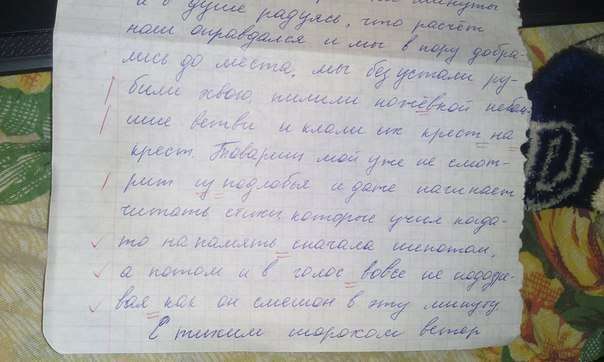 минуты
и в душе радуясь, что расчёт
наш оправдался и мы в пору добра-
лись до места, мы без устали ру-
били хвою, пилили ножёвкой небол-
шие ветви и клали их крест на
крест. Товарищ мой уже не смот-
рит из подлобья и даже начинает
читать стихи, которые учил когда-
то на память сначала шепотом,
а потом и в голос вовсе не подозре-
вая как он смешон в эту минуту.
С тихим шорохом ветер